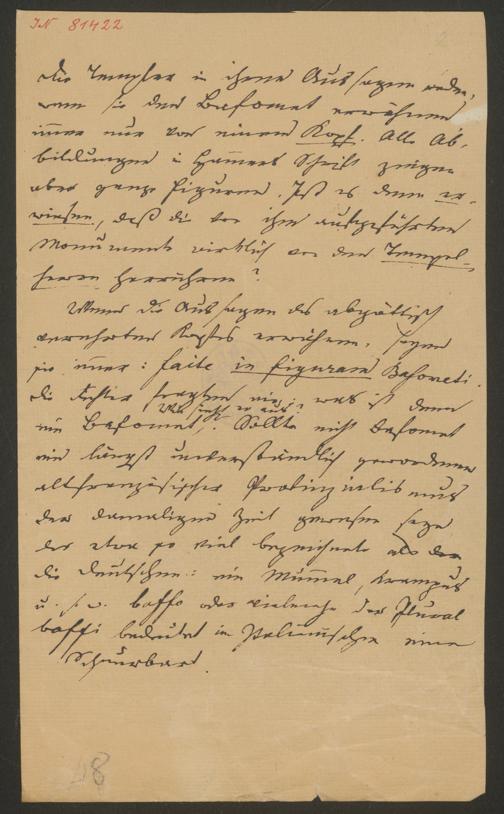 IN 81422
Die Templer in ihren Aussagen reden,
wenn sie den Bafomet erwähnen
immer nur von einem Kopf. Alle Ab-
bildungen in Hammers Schrift zeigen
aber ganze Figuren. Ist es denn er-
wiesen, daß die von ihm aufgeführten
Monumente wirklich von den Tempel-
herren herrühren?
Wenn die Aussagen des abgöttisch
verehrten Kopfes erwähnen, sagen
sie immer: faite in figuram Bafometi.
Die Richter fragten nie: was ist denn
Wie sieht er aus?
ein Bafomet? Sollte nicht Bafomet
ein längst unverständlich gewordener
altfranzösischer Provinzialismus
der damaligen Zeit gewesen seyn
der etwa so viel bezeichnete als
die Deutschen: ein Mummel, Krampus
u. s. w. baffo oder vielmehr der Plural
baffi bedeutet im Italienischen einen
Schnurrbart.
48